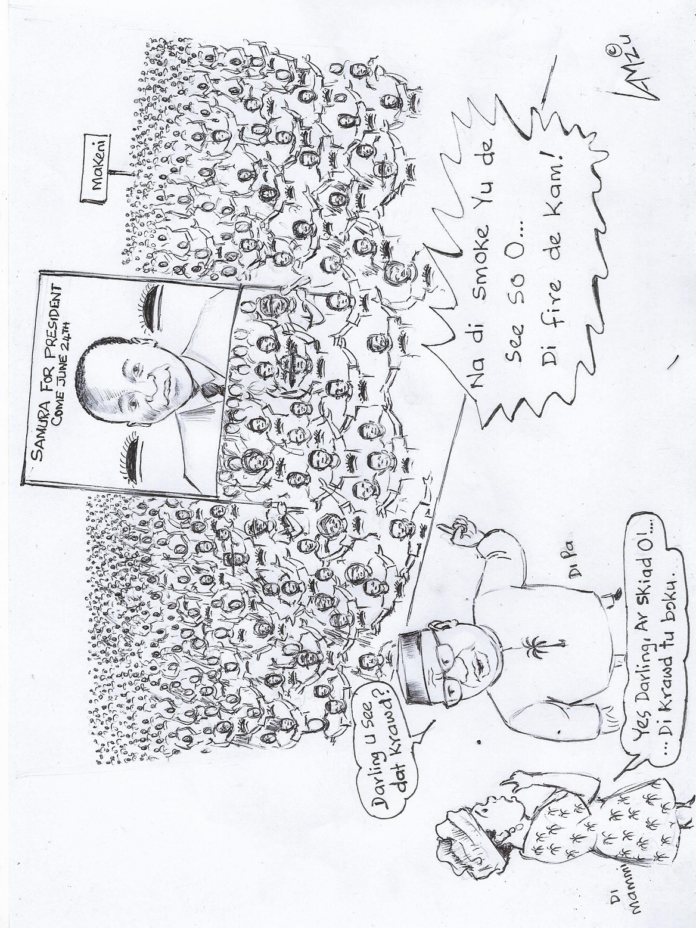 SAMURA FOR PRESIDENT
COME JUNE 24TH
Makeni
Na di smoke Yu de
see so O...
Di fire de Kam!
Darling u see
dat Krawd?
Di Pa
Yes Darling, Ar skiad O!...
...Di Krawd tu boku...
Di
Mammi
©
LAMZU